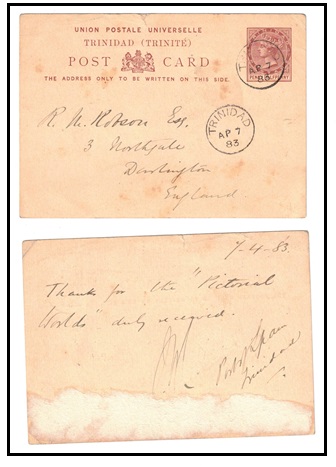 UNION POSTALE UNIVERSELLE
TRINIDAD (TRINITÉ)
POST CARD
THE ADDRESS ONLY TO BE WRITTEN ON THIS SIDE.
TRINIDAD
AP 7
83
R. W. Robson Esq.
3 Northgate
Darlington
England
TRINIDAD
AP 7
83
7-4-83.
Thanks for the "Pictorial
Worlds" duly received.
Port of Spain
Trinidad.